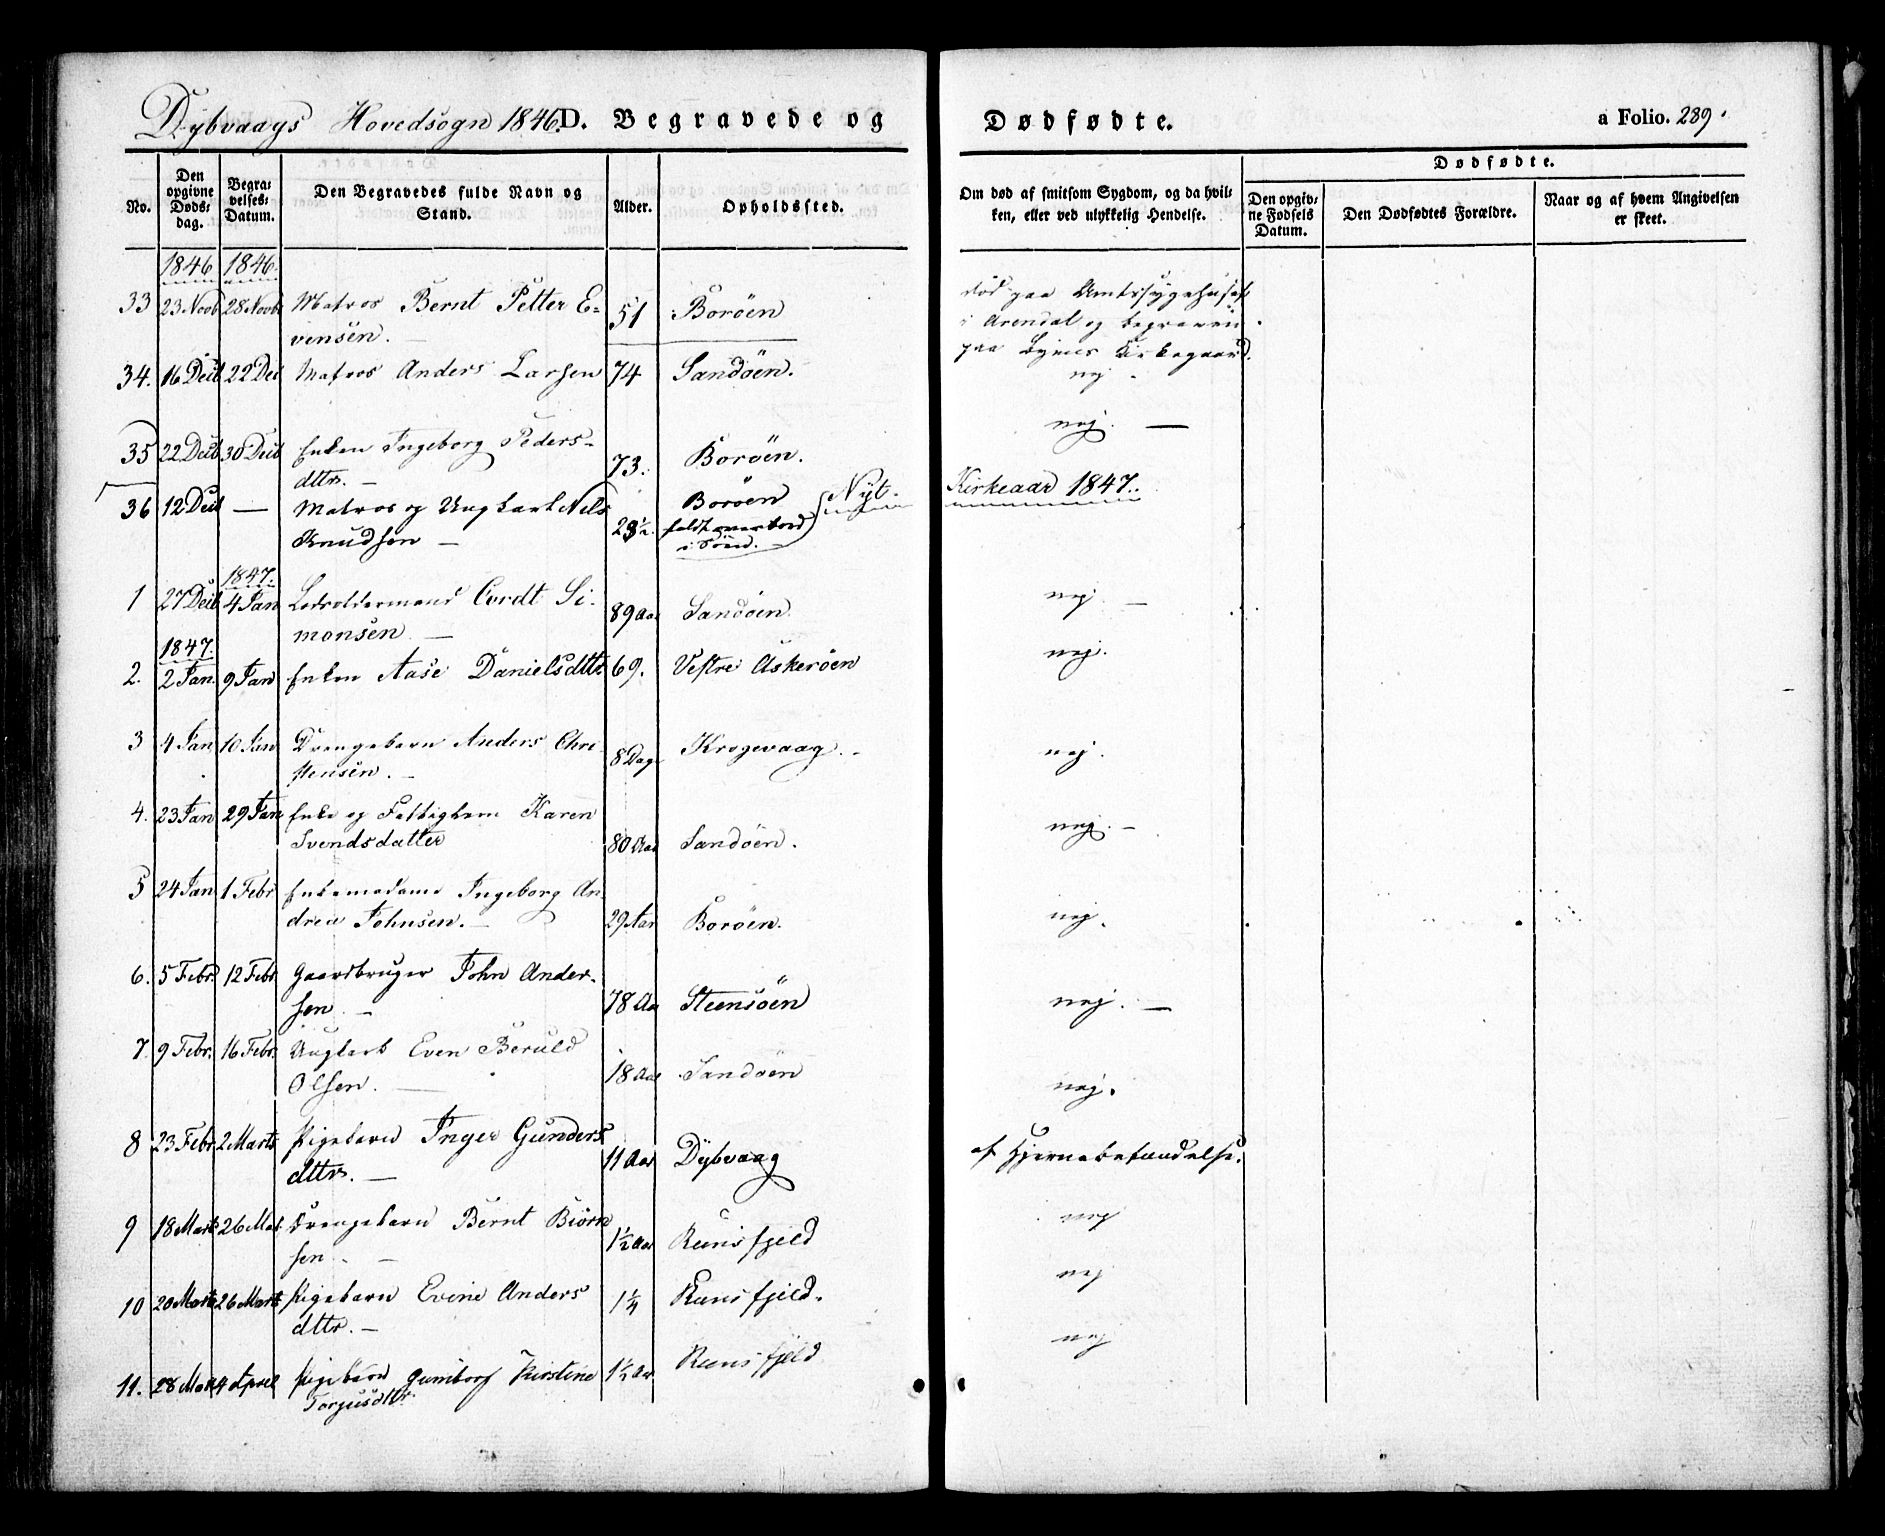 Dybvaags Hovedsogn 1846. D. Begravede og Dødfødte. a Folio. 289.
No. Den opgivne Dødsdag. Begravelses-Datum. Den Begravedes fulde Navn og Stand. Alder. Opholdssted. Om død af smitsom Sygdom, og da hvilken, eller ved ulykkelig Hendelse. Dødfødte. Den opgivne Fødsels Datum. Den Dødfødtes Forældre. Naar og af hvem Angivelsen er skeet.
1846 1846
33 23 Novb 28 Novb Matros Bernt Petter E= 51 Borøen død paa Amtssygehuset
vensen. — i Arendal og begraven
paa Byens Kirkegaard.
34. 16 Decb 22 Dec Matros Anders Larsen 74 Sandøen. nej
35 22 Decb 30 Decb Enken Ingeborg Peders= 73. Borøen. nej. —
dttr. —
36 12 Decb — Matros og Ungkarl Nils 28½. Borøen
Knudsen — faldt overbord
i Søen.
Nyt Kirkeaar 1847.
1847.
1 27 Decb 4 Jan Lodsoldermand Cordt Si- 89 Aar Sandøen. nej —
monsen —
1847.
2. 2 Jan. 9 Jan Enken Aase Danielsdttr 69. Vestre Askerøen nej.
3 4 Jan 10 Jan Drengebarn Anders Chri- 8 Dage Krogevaag. nej.
stensen. —
4. 23 Jan 29 Jan Enke og Fattiglem Karen 80 Aar Sandøen. nej. —
Svendsdatter
5 24 Jan 1 Febr Enkemadame Ingeborg An- 29 Aar Borøen. nej.
drea Johnsen. —
6. 5 Febr. 12 Febr. Gaardbruger John Ander- 78 Aa Steensøen nej. —
sen. —
7. 9 Febr. 16 Febr. Ungkarl Even Beruld 18 Aar Sandøen nej.
Olsen. —
8 23 Febr. 2 Marts Pigebarn Inger Gunders 11 Aar Dybvaag af Hjernebetændelse.
dttr. —
9 18 Marts 26 Mar. Drengebarn Bernt Biørn 1½ Aar Runsfjeld nej
sen. —
10 20 Marts 26 Marts Pigebarn Evine Anders 1¼ Runsfjeld. nej
dttr. —
11. 28 Mar 4 April Pigebarn Gumborg Kirstine 1½ Aar Runsfjeld nej
Torjusdttr.